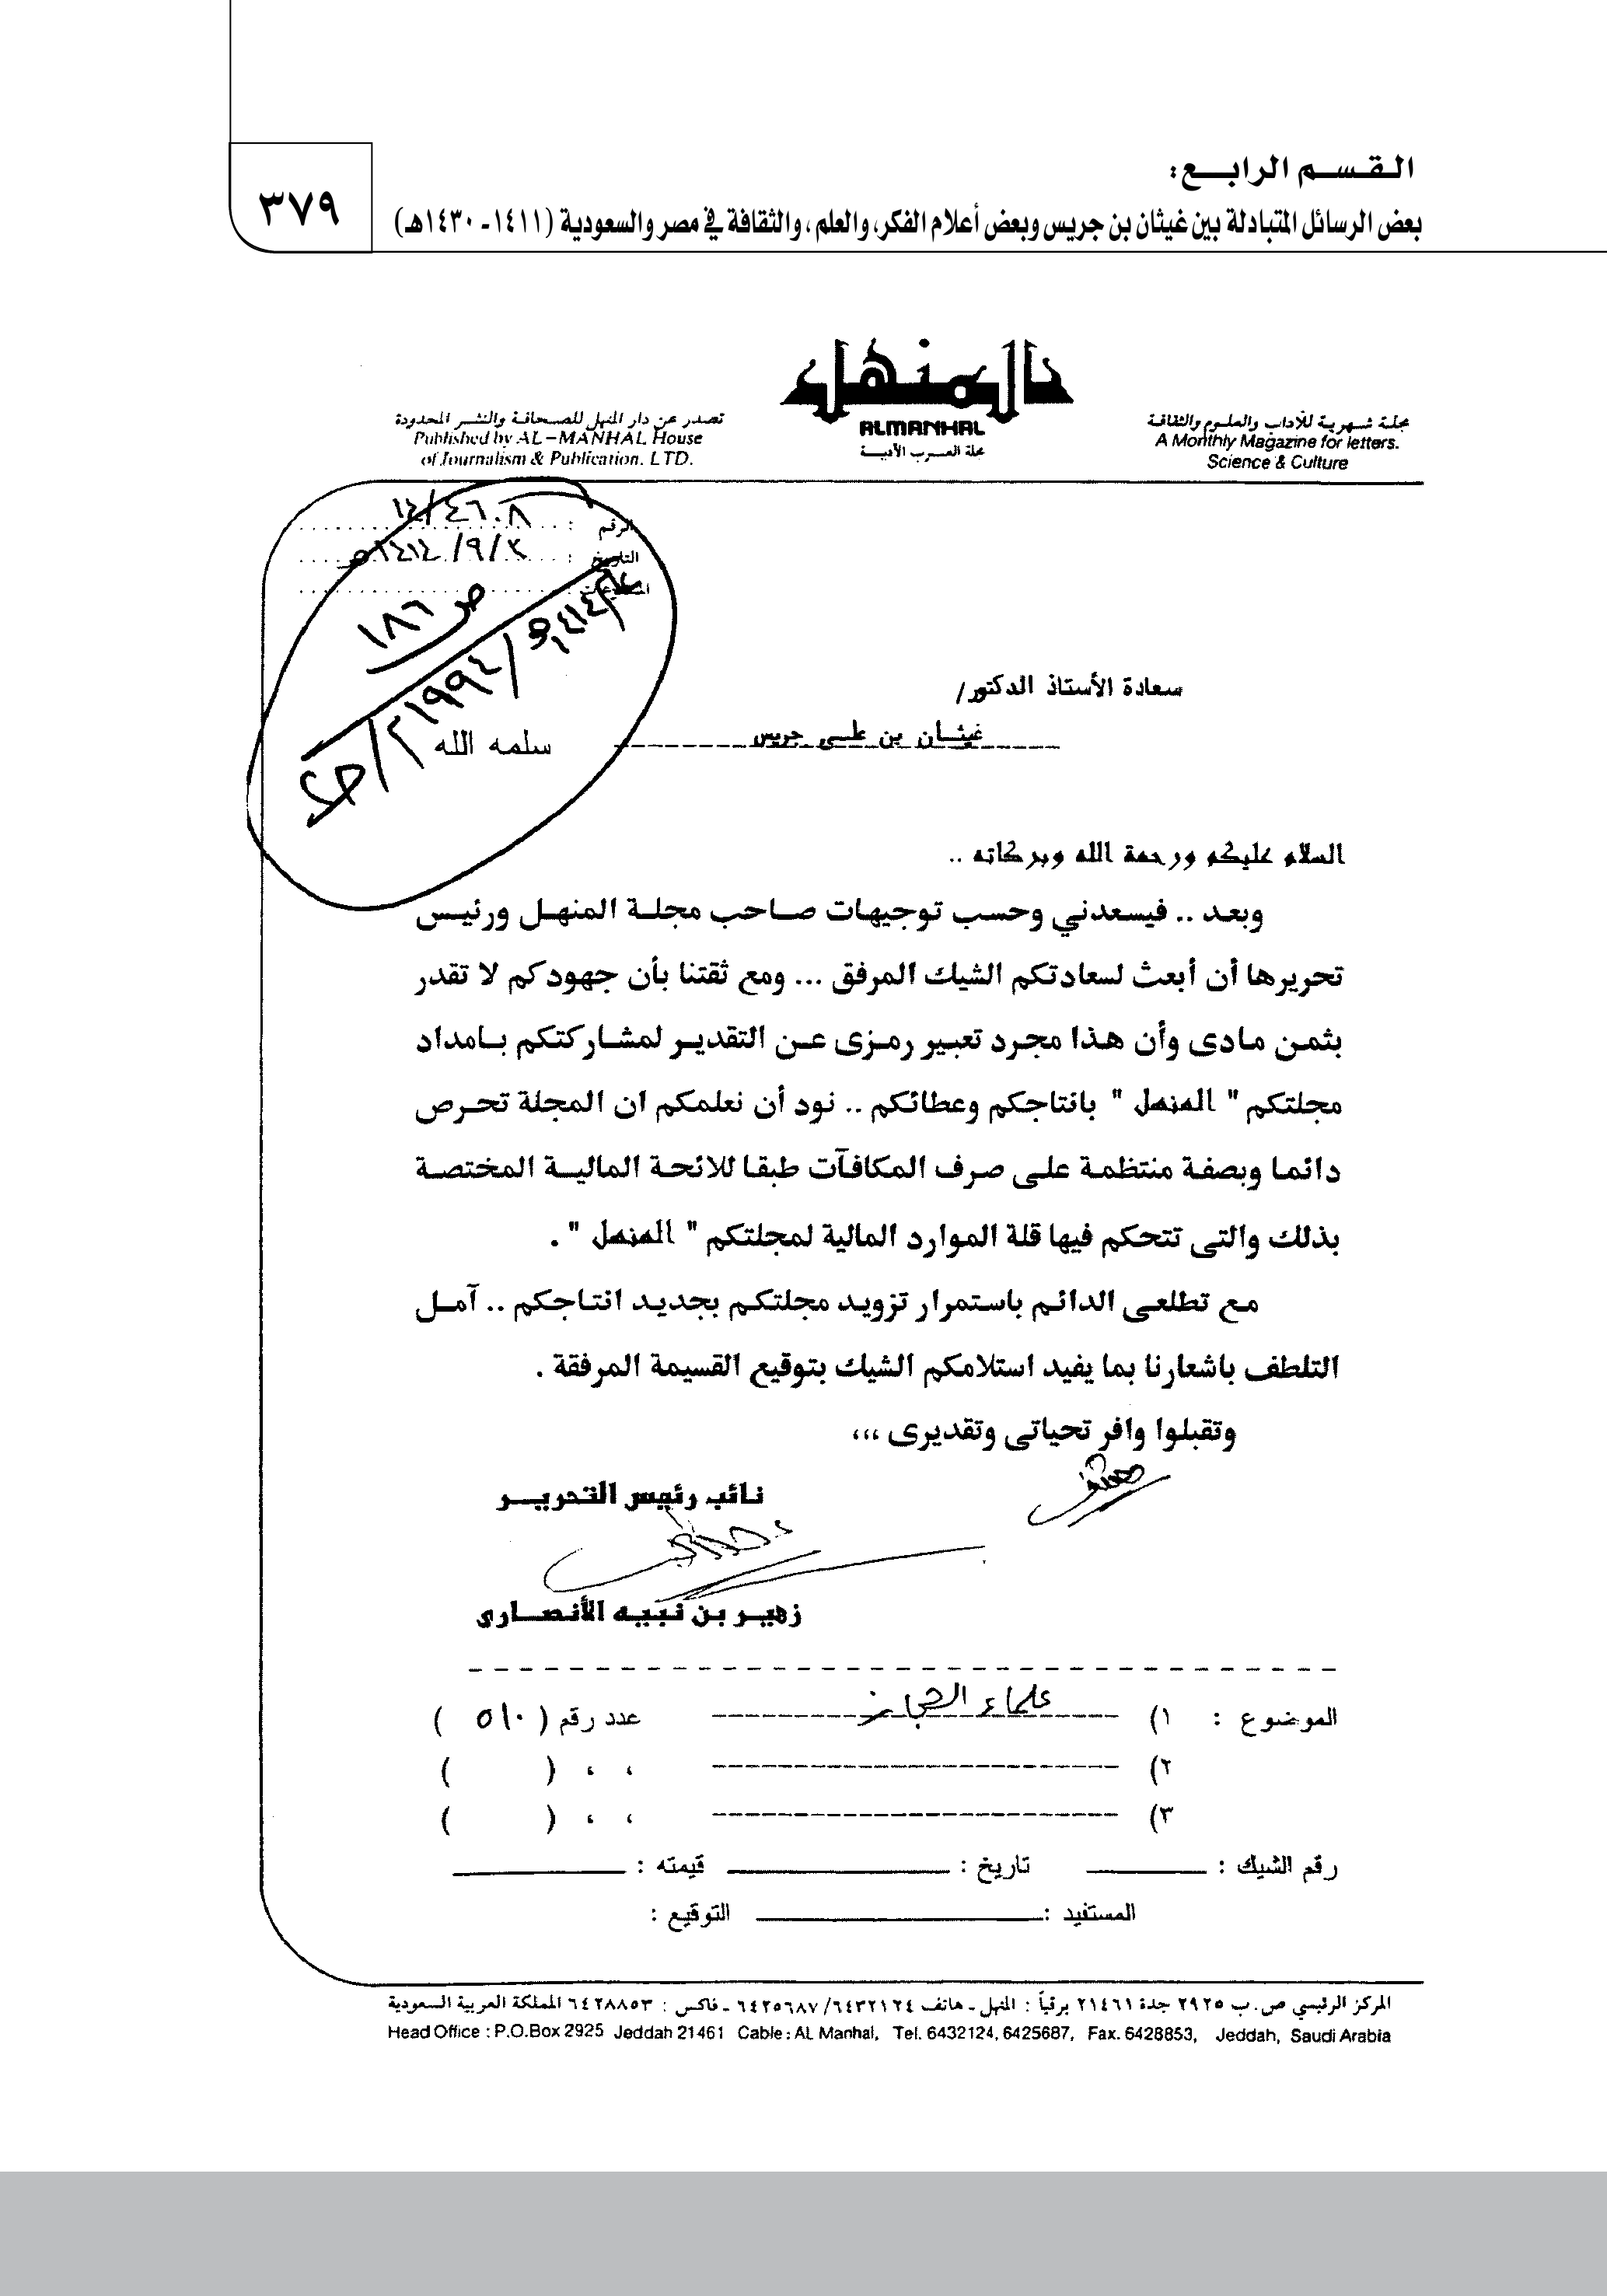 القسم الرابع:
بعض الرسائل المتبادلة بين غيثان بن جريس وبعض أعلام الفكر، والعلم، والثقافة في مصر والسعودية (١٤١١- ١٤٣٠هـ)
٣٧٩
المنهل
ALMANHAL
مجلة العرب الأدبية
مجلة شهرية للآداب والعلوم والثقافة
A Monthly Magazine for letters.
Science & Culture
تصدر عن دار المنهل للصحافة والنشر المحدودة
Published by AL-MANHAL House
of Journalism & Publication. LTD.
الرقم : ١٤/٤٦٠٨
التاريخ : ١٤١٤/٩/٢هـ
ص ١٨٦
سعادة الأستاذ الدكتور/
غيثان بن علي جريس سلمه الله
السلام عليكم ورحمة الله وبركاته ..
وبعد .. فيسعدني وحسب توجيهات صاحب مجلة المنهل ورئيس
تحريرها أن أبعث لسعادتكم الشيك المرفق ... ومع ثقتنا بأن جهودكم لا تقدر
بثمن مادى وأن هذا مجرد تعبير رمزى عن التقدير لمشاركتكم بامداد
مجلتكم " المنهل " بانتاجكم وعطائكم .. نود أن نعلمكم ان المجلة تحرص
دائما وبصفة منتظمة على صرف المكافآت طبقا للائحة المالية المختصة
بذلك والتى تتحكم فيها قلة الموارد المالية لمجلتكم " المنهل " .
مع تطلعى الدائم باستمرار تزويد مجلتكم بجديد انتاجكم .. آمل
التلطف باشعارنا بما يفيد استلامكم الشيك بتوقيع القسيمة المرفقة .
وتقبلوا وافر تحياتى وتقديرى ،،،
نائب رئيس التحرير
زهير بن نبيه الأنصارى
الموضوع : ١) علماء الحجاز عدد رقم ( ٥١٠ )
٢) ، ، ( )
٣) ، ، ( )
رقم الشيك : تاريخ : قيمته :
المستفيد : التوقيع :
المركز الرئيسي ص.ب ٢٩٢٥ جدة ٢١٤٦١ برقياً : المنهل ـ هاتف ٦٤٣٢١٢٤/ ٦٤٢٥٦٨٧ ـ فاكس : ٦٤٢٨٨٥٣ المملكة العربية السعودية
Head Office : P.O.Box 2925 Jeddah 21461 Cable : AL Manhal, Tel. 6432124, 6425687, Fax. 6428853, Jeddah, Saudi Arabia